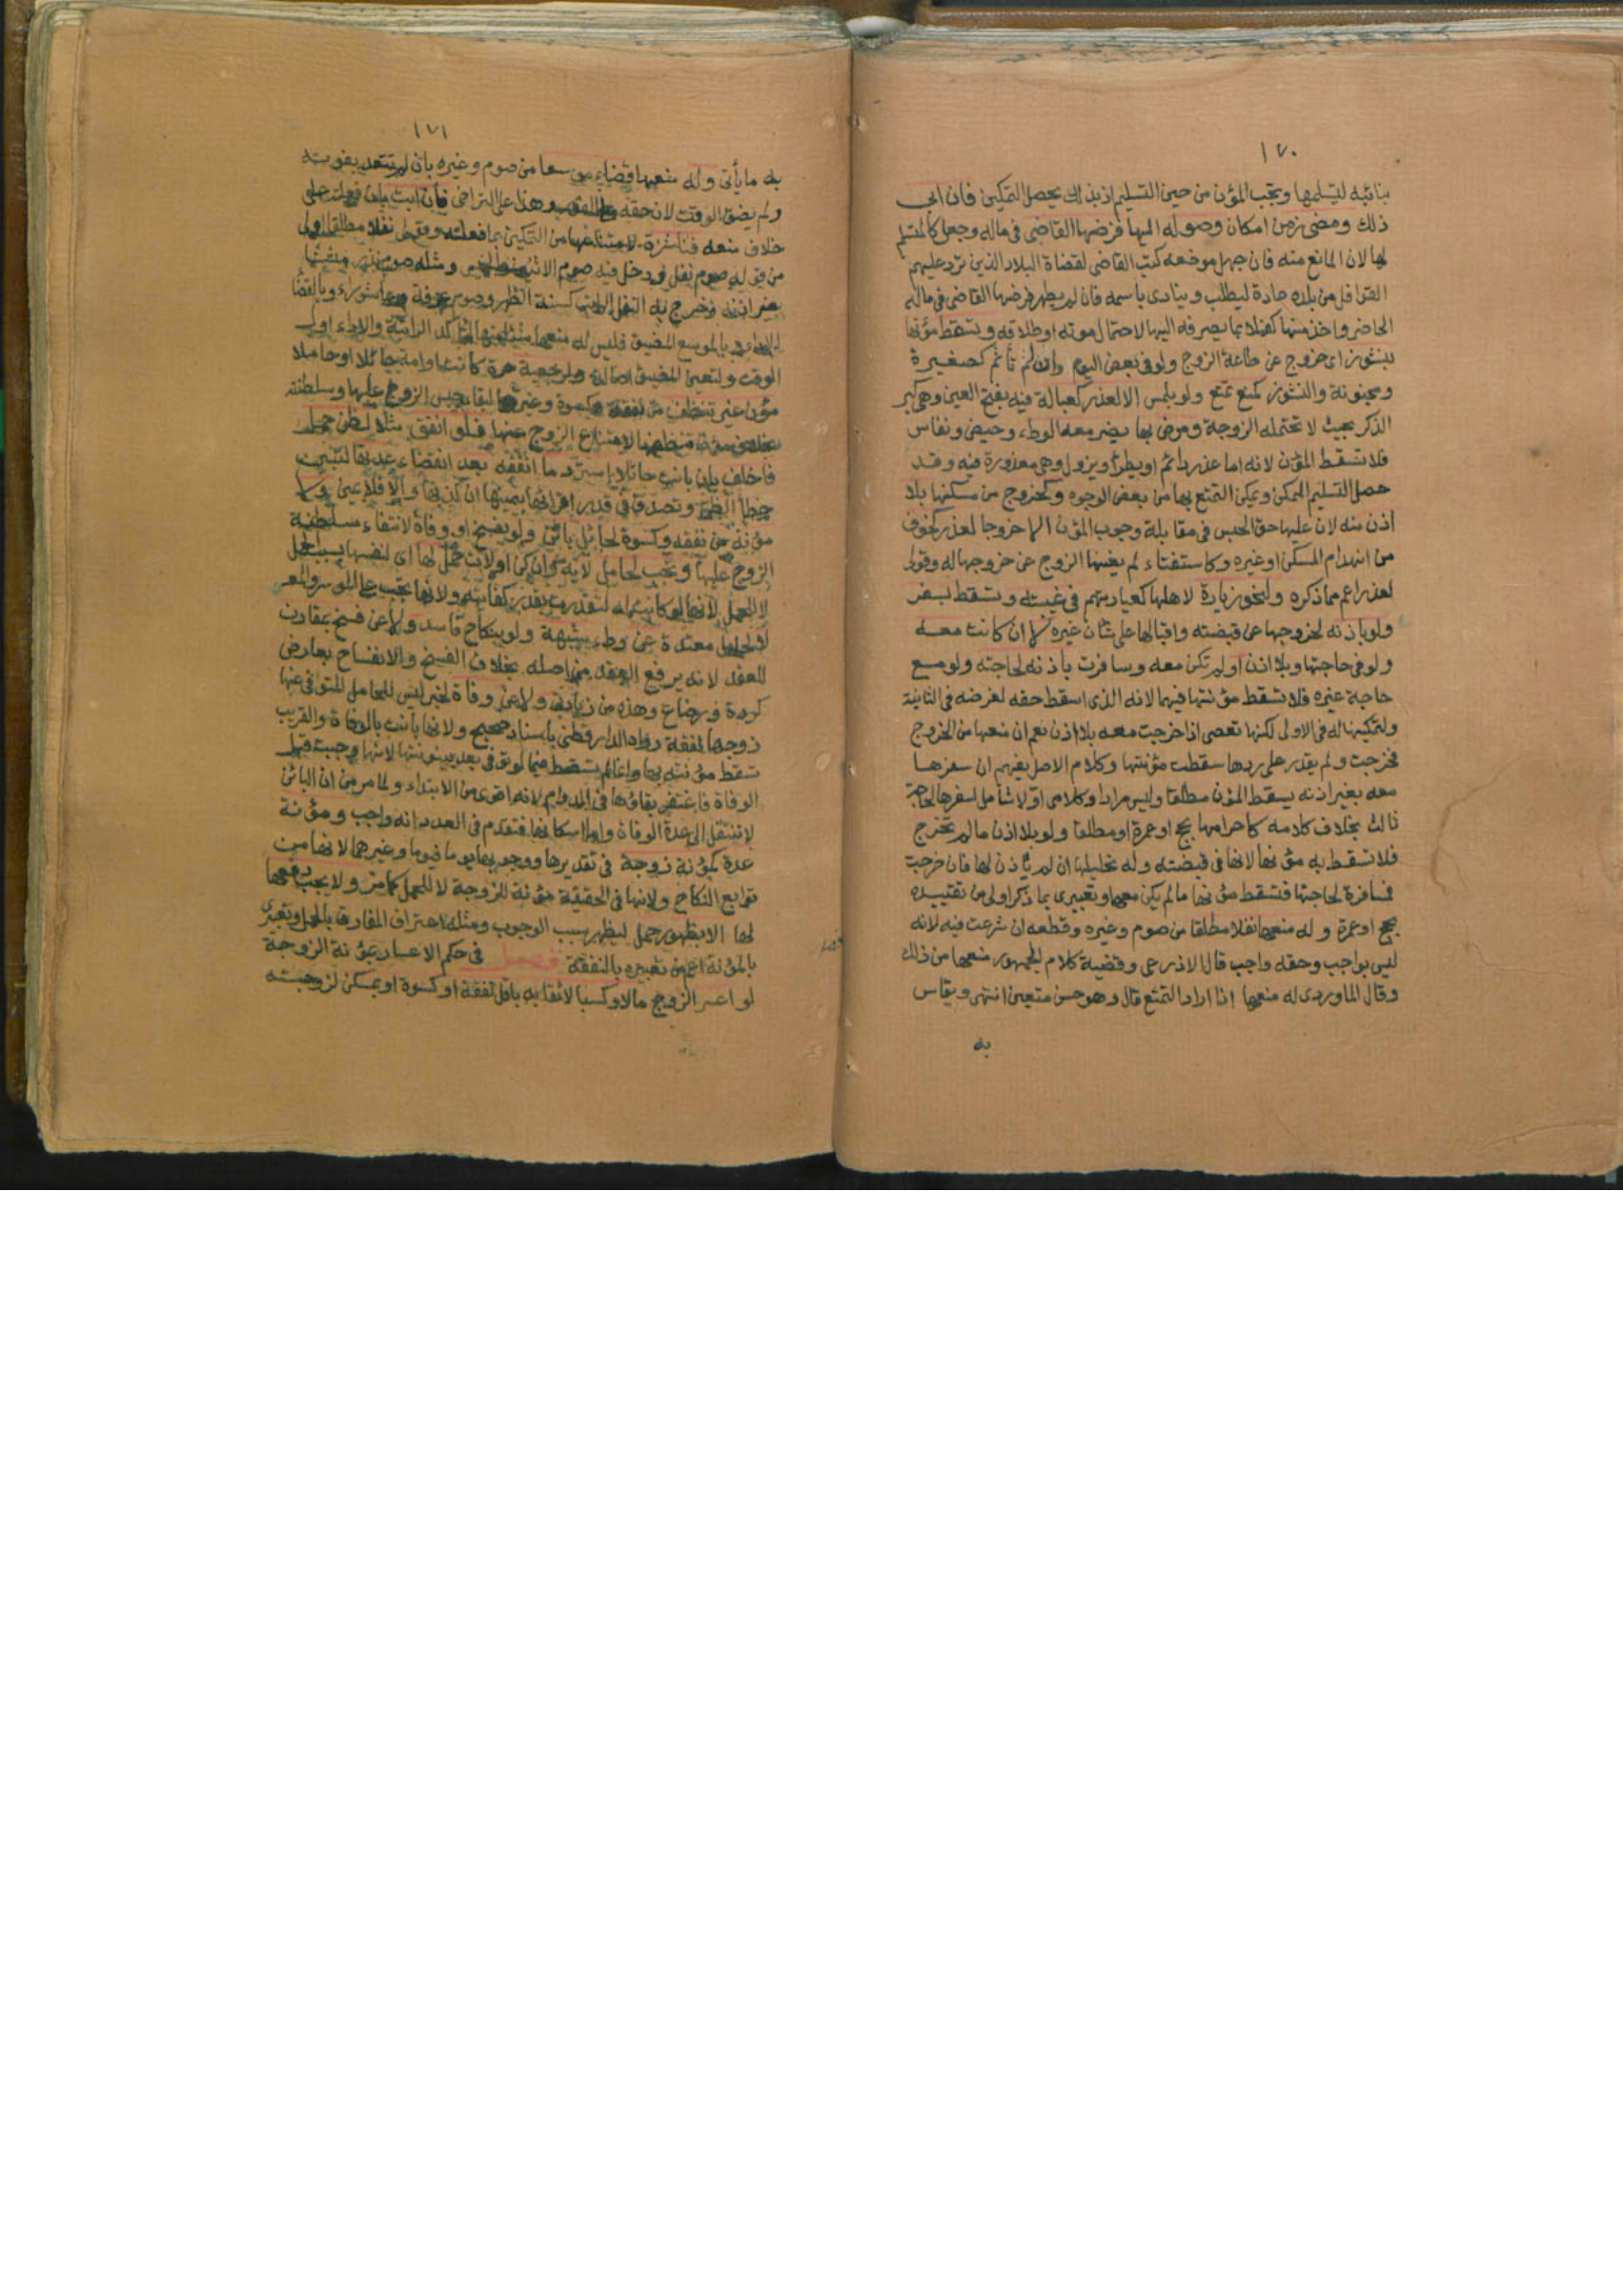 ١٧٠
بنائبه ليتسلمها وتجب المؤن من حين التسليم اذ بذلك يحصل التمكين فان ابى
ذلك ومضى زمن امكان وصوله اليها فرضها القاضى فى ماله وجعل كالمتسلم
لها لان المانع منه فان جهل موضعه كتب القاضى لقضاة البلاد الذين ترد عليهم
القوافل من بلده عادة ليطلب وينادى باسمه فان لم يظهر فرضها القاضى فى ماله
الحاضر واخذ منها كفيلا بما يصرفه اليها لاحتمال موته او طلاقه وتسقط مؤنها
بنشوز اى خروج عن طاعة الزوج ولو فى بعض اليوم وان لم تأثم كصغيرة
ومجنونة والنشوز كمنع تمتع ولو بلمس الا لعذر كعبالة فيه بفتح العين وهى كبر
الذكر بحيث لا تحتمله الزوجة ومرض بها يضر معه الوطء وحيض ونفاس
فلا تسقط المؤن لانه اما عذر دائم او يطرأ ويزول وهى معذورة فيه وقد
حصل التسليم الممكن ويمكن التمتع بها من بعض الوجوه وكخروج من مسكنها بلا
اذن منه لان عليها حق الحبس فى مقابلة وجوب المؤن الا خروجا لعذر كخوف
من انهدام المسكن او غيره وكاستفتاء لم يغنها الزوج عن خروجها له وقولى
لعذر اعم مما ذكره ولنحو زيارة لاهلها كعيادتهم فى غيبته وتسقط بسفر
ولو باذنه لخروجها عن قبضته واقبالها على شان غيره لا ان كانت معه
ولو فى حاجتها وبلا اذن او لم تكن معه وسافرت باذنه لحاجته ولو مع
حاجة غيره فلا تسقط مؤنتها فيهما لانه الذى اسقط حقه لغرضه فى الثانية
ولتمكينها له فى الاولى لكنها تعصى اذا خرجت معه بلا اذن نعم ان منعها من الخروج
فخرجت ولم يقدر على ردها سقطت مؤنتها وكلام الاصل يفهم ان سفرها
معه بغير اذنه يسقط المؤن مطلقا وليس مرادا وكلامى اولا شامل لسفرها لحاجة
ثالث بخلاف كلامه كاحرامها بحج او عمرة او مطلقا ولو بلا اذن ما لم تخرج
فلا تسقط به مؤنها لانها فى قبضته وله تحليلها ان لم يأذن لها فان خرجت
فمسافرة لحاجتها فتسقط مؤنها ما لم يكن معها وتعبيرى بما ذكر اولى من تقييده
بحج او عمرة وله منعها نفلا مطلقا من صوم وغيره وقطعه ان شرعت فيه لانه
ليس بواجب وحقه واجب قال الاذرعى وقضية كلام الجمهور منعها من ذلك
وقال الماوردى له منعها اذا اراد التمتع قال وهو حسن متعين انتهى ويقاس
به
١٧١
به ما يأتى وله منعها قضاء موسعا من صوم وغيره بان لم تتعد بفوته
ولم يضق الوقت لان حقه على الفور وهذا على التراخى فان ابت بان فعلت على
خلاف منعه فناشزة لامتناعها من التمكين بما فعلته وقولى نفلا مطلقا اولى
من قوله صوم نفل ودخل فيه صوم الاثنين والخميس ومثله صوم نذر منشأ
بغير اذنه وخرج به النفل الراتب كسنة الظهر وصوم عرفة وعاشوراء وبالقضاء
الاداء وبالموسع المضيق فليس له منعها شيئا منها لتأكد الراتبة والاداء اول
الوقت ولتعين المضيق اصالة ولرجعية حرة كانت او امة حائلا او حاملا
مؤن غير تنظف من نفقة وكسوة وغيرهما لبقاء حبس الزوج عليها وسلطنته
بخلاف مؤنة تنظفها لامتناع الزوج عنها فلو انفق مثلا لظن حمل
فاخلف بان بانت حائلا استرد ما انفقه بعد انقضاء عدتها لتبين
خطأ الظن وتصدق فى قدر اقرائها بيمينها ان كذبها والا فلا يمين ولا
مؤنة من نفقة وكسوة لحائل بائن ولو بفسخ او وفاة لانتفاء سلطنة
الزوج عليها وتجب لحامل لآية وان كن اولات حمل لها اى لنفسها بسبب الحمل
لا للحمل لانها لو كانت له لتقدرت بقدر كفايته ولانها تجب على الموسر والمعسر
لا لحامل معتدة عن وطء بشبهة ولو بنكاح فاسد ولا عن فسخ بمقارن
للعقد لانه يرفع العقد من اصله بخلاف الفسخ والانفساخ بعارض
كردة ورضاع وهذه من زيادتى ولا عن وفاة لخبر ليس للحامل المتوفى عنها
زوجها نفقة رواه الدارقطنى باسناد صحيح ولانها بانت بالوفاة والقريب
تسقط مؤنته بها وانما لم تسقط فيما لو توفى بعد بينونتها لانها وجبت قبل
الوفاة فاغتفر بقاؤها فى الدوام لانه اقوى من الابتداء ولما مر من ان البائن
لا تنتقل الى عدة الوفاة واما اسكانها فتقدم فى العدد انه واجب ومؤنة
عدة كمؤنة زوجة فى تقديرها ووجوبها يوما فيوما وغيرهما لانها من
توابع النكاح ولانها فى الحقيقة مؤنة للزوجة لا للحمل كما مر ولا يجب دفعها
لها الا بظهور حمل ليظهر سبب الوجوب ومثله اعتراف المفارق بالحمل وتعبيرى
بالمؤنة اعم من تعبيره بالنفقة فصل فى حكم الاعسار بمؤنة الزوجة
لو اعسر الزوج مالا وكسبا لائقا به باقل نفقة او كسوة او بمسكن لزوجته